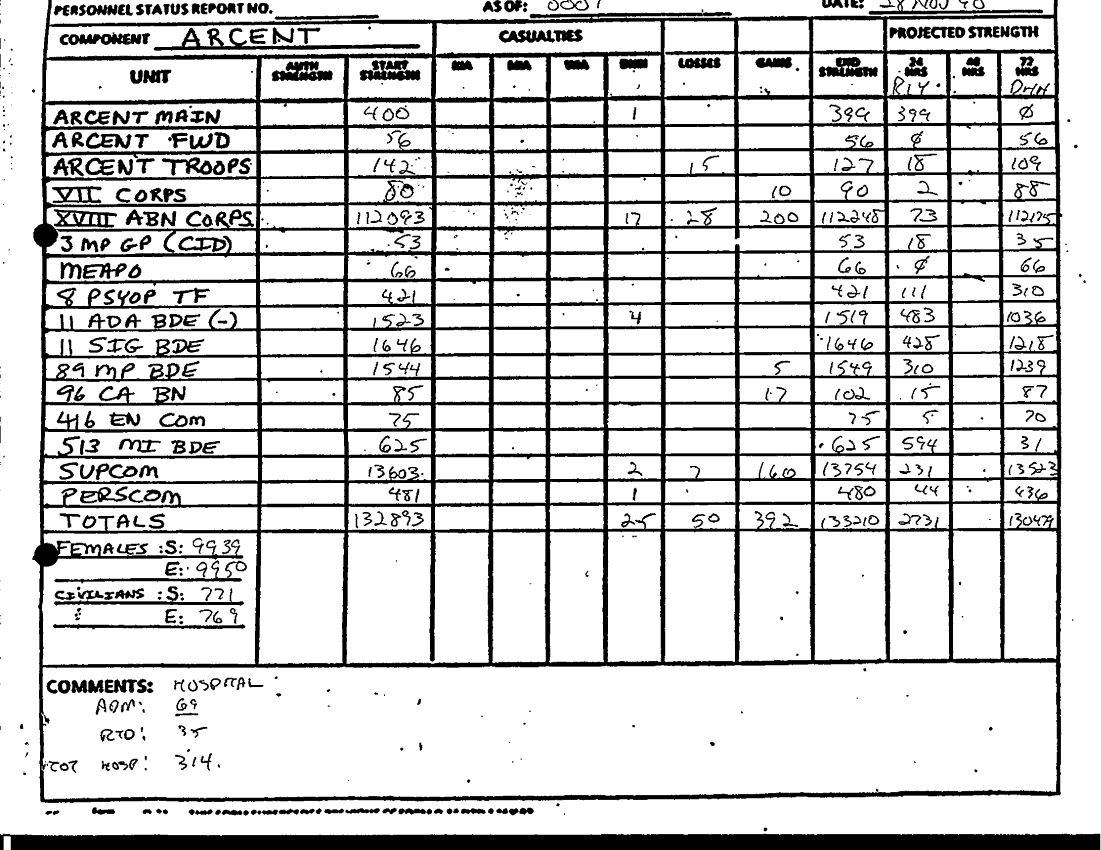 PERSONNEL STATUS REPORT NO. AS OF: 0001 DATE: 28 NOV 90
COMPONENT ARCENT CASUALTIES PROJECTED STRENGTH
UNIT AUTH STRENGTH START STRENGTH KIA MIA WIA DNBI LOSSES GAINS END STRENGTH 24 HRS 48 HRS 72 HRS
ARCENT MAIN 400 1 399 399 Ø
ARCENT FWD 56 56 Ø 56
ARCENT TROOPS 142 15 127 18 109
VII CORPS 80 10 90 2 88
XVIII ABN CORPS 112093 17 28 200 112248 73 112175
3 MP GP (CID) 53 53 18 35
MEAPO 66 66 Ø 66
8 PSYOP TF 421 421 111 310
11 ADA BDE (-) 1523 4 1519 483 1036
11 SIG BDE 1646 1646 428 1218
89 MP BDE 1544 5 1549 310 1239
96 CA BN 85 17 102 15 87
416 EN COM 75 75 5 70
513 MI BDE 625 625 594 31
SUPCOM 13603 2 7 160 13754 231 13523
PERSCOM 481 1 480 44 436
TOTALS 132893 25 50 392 133210 2731 130479
FEMALES :S: 9939
E: 9950
CIVILIANS :S: 771
E: 769
COMMENTS: HOSPITAL
ADM: 69
RTD: 35
TOT HOSP: 314.